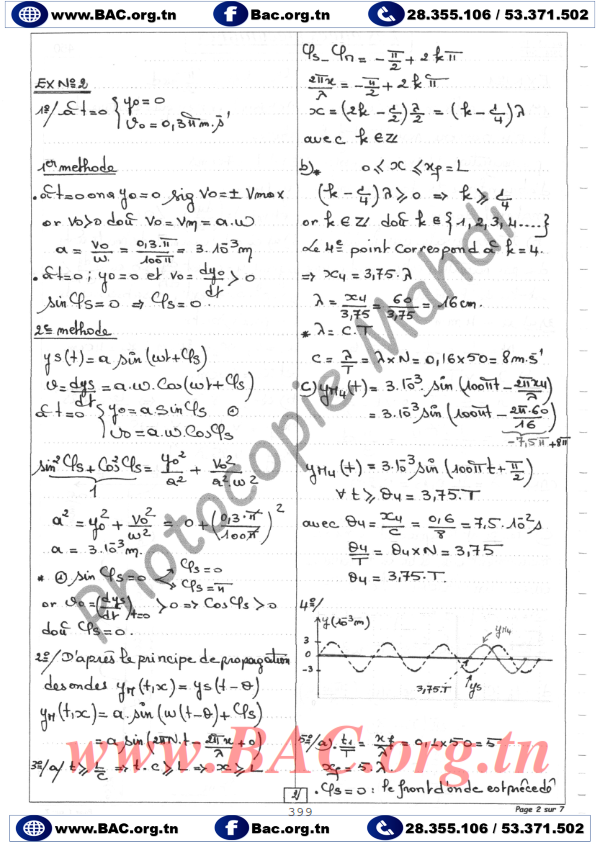 www.BAC.org.tn Bac.org.tn 28.355.106 / 53.371.502
EX N°2
1°/ _ à t=0 { y0=0
v0=0,3πm.s⁻¹
1er methode
. à t=0 on a y0=0 sig v0=± Vmax
or v0>0 doù v0=Vm=a.w
a = v0/w = 0,3.π/100π = 3.10⁻³m
. à t=0 ; y0=0 et v0= dy0/dt > 0
sin φs=0 ⇒ φs=0.
2e methode
ys(t)=a sin(wt+φs)
v=dys/dt=a.w.Cos(wt+φs)
à t=0 { y0=a sin φs ⊕
v0=a.w.Cosφs
sin²φs+Cos²φs= y0²/a² + v0²/a².w²
1
a²= y0²+ v0²/w² = 0+(0,3.π/100π)²
a= 3.10⁻³m.
* ⊕ sin φs=0 → φs=0
→ φs=π
or v0=(dys/dt)t=0 >0 ⇒ Cosφs>0
doù φs=0.
2°/ D'après le principe de propagation
des ondes yM(t,x)=ys(t-θ)
yM(t,x)=a.sin(w(t-θ)+φs)
=a sin(2πN.t- 2πx/λ +0)
3°/ a/ t ≥ L/C ⇒ t.c ≥ L ⇒ x ≥ L
φs_φM = -π/2 + 2kπ
2πx/λ = -π/2 + 2kπ
x=(2k-1/2)λ/2 = (k-1/4)λ
avec k∈ℤ
b)* 0 ≤ x ≤ xf=L
(k-1/4)λ ≥ 0 ⇒ k ≥ 1/4
or k∈ℤ doù k∈{1,2,3,4....}
Le 4e point correspond à k=4.
⇒ x4=3,75.λ
λ= x4/3,75 = 60/3,75 = 16cm.
* λ=C.T
c= λ/T =λ×N=0,16×50=8m.s⁻¹
C) yM4(t)=3.10⁻³.sin(100πt- 2πx4/λ)
=3.10⁻³sin(100πt- 2π.60/16)
-7,5π+8π
yM4(t)=3.10⁻³sin(100πt+π/2)
∀ t ≥ θ4=3,75.T
avec θ4= x4/C = 0,6/8 = 7,5.10⁻²s
θ4/T = θ4×N=3,75
θ4=3,75.T.
4°/
y(10⁻³m) yM4
3
0
-3
3,75.T ys
5°/a). t1/T = xf/λ = 0,1×50=5
xf=5λ
. φs=0 : le front d'onde est précédé
Photocopie Mahdi
www.BAC.org.tn
2/
399
Page 2 sur 7
www.BAC.org.tn Bac.org.tn 28.355.106 / 53.371.502